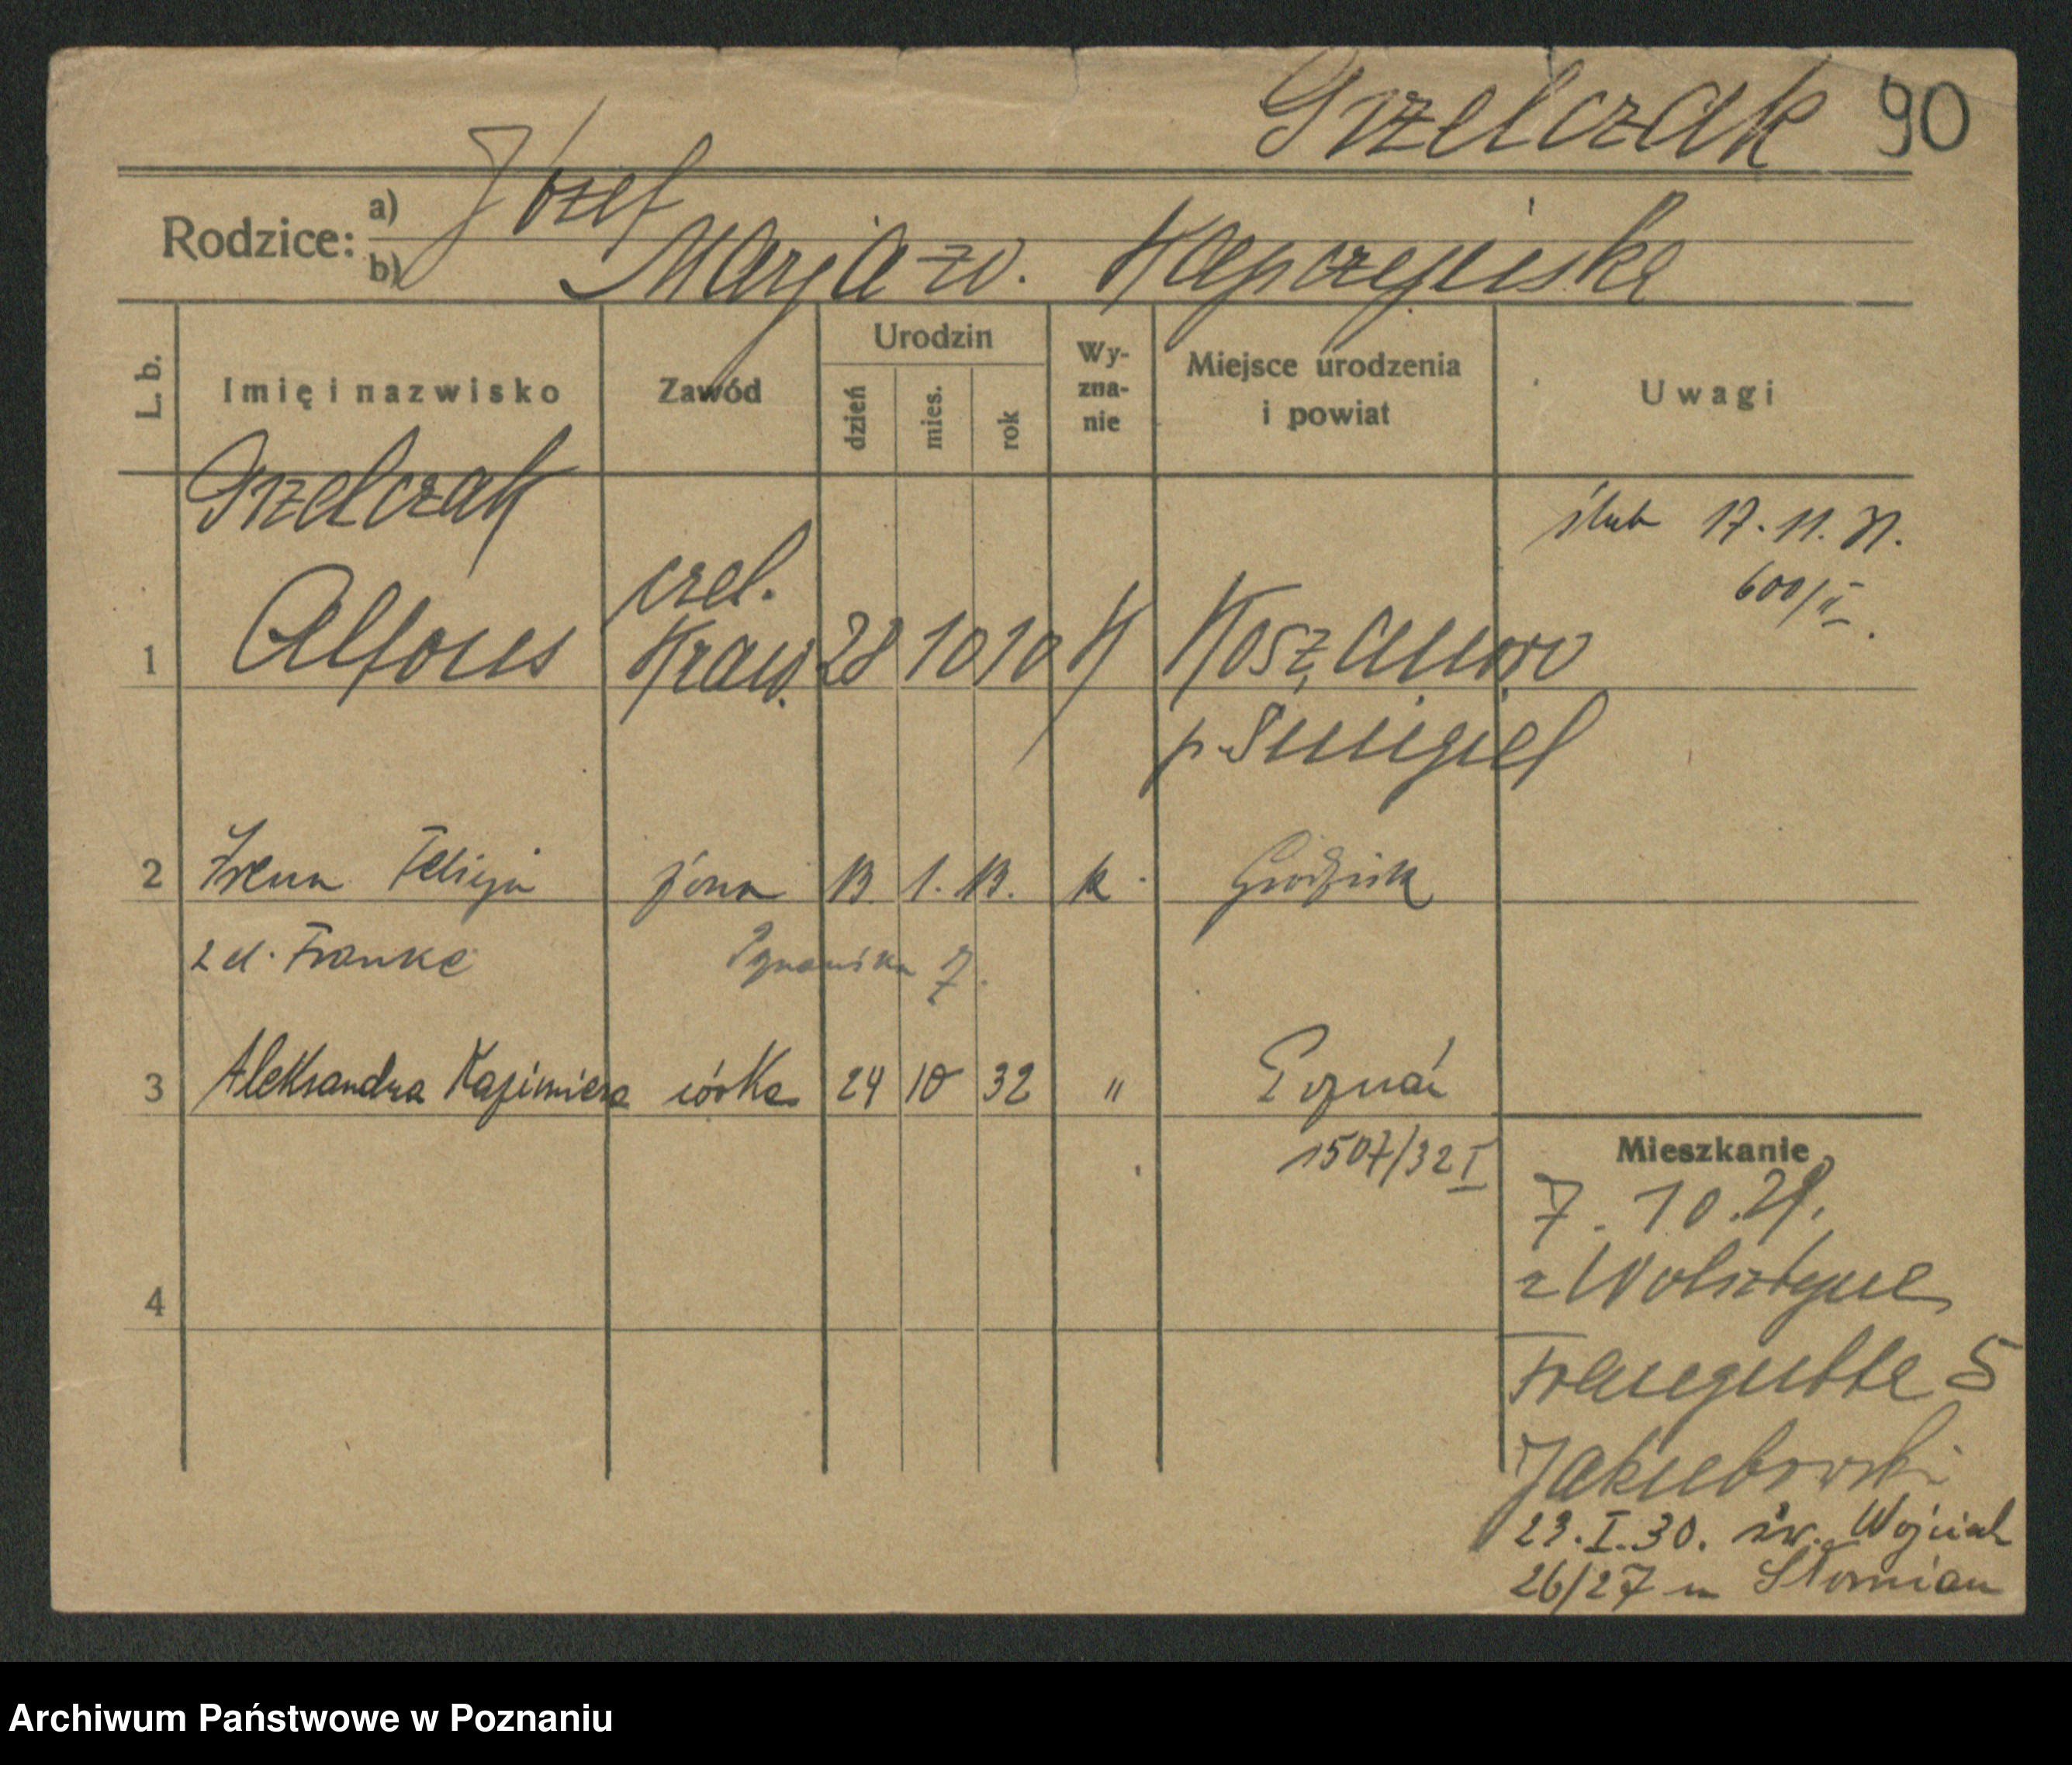 Grzelczak 90
Rodzice: a) Józef
b) Marja z d. Kapczyńska
L. b.
Imię i nazwisko
Zawód
Urodzin
dzień
mies.
rok
Wy-
zna-
nie
Miejsce urodzenia
i powiat
Uwagi
Grzelczak
ślub 17. 11. 31.
600/II.
1 Alfons czel. Kraw. 28 10 10 K Koszanowo
p. Śmigiel
2 Irena Felicja żona 13. 1. 13. k. Grodzisk
z d. Franke Poznańska 7.
3 Aleksandra Kazimiera córka 24 10 32 " Poznań
1507/32 I
4
Mieszkanie
7. 10. 29.
z Wolsztyna
Traugutta 5
Jakubowski
23. I. 30. św. Wojciech
26/27 u Słomian
Archiwum Państwowe w Poznaniu